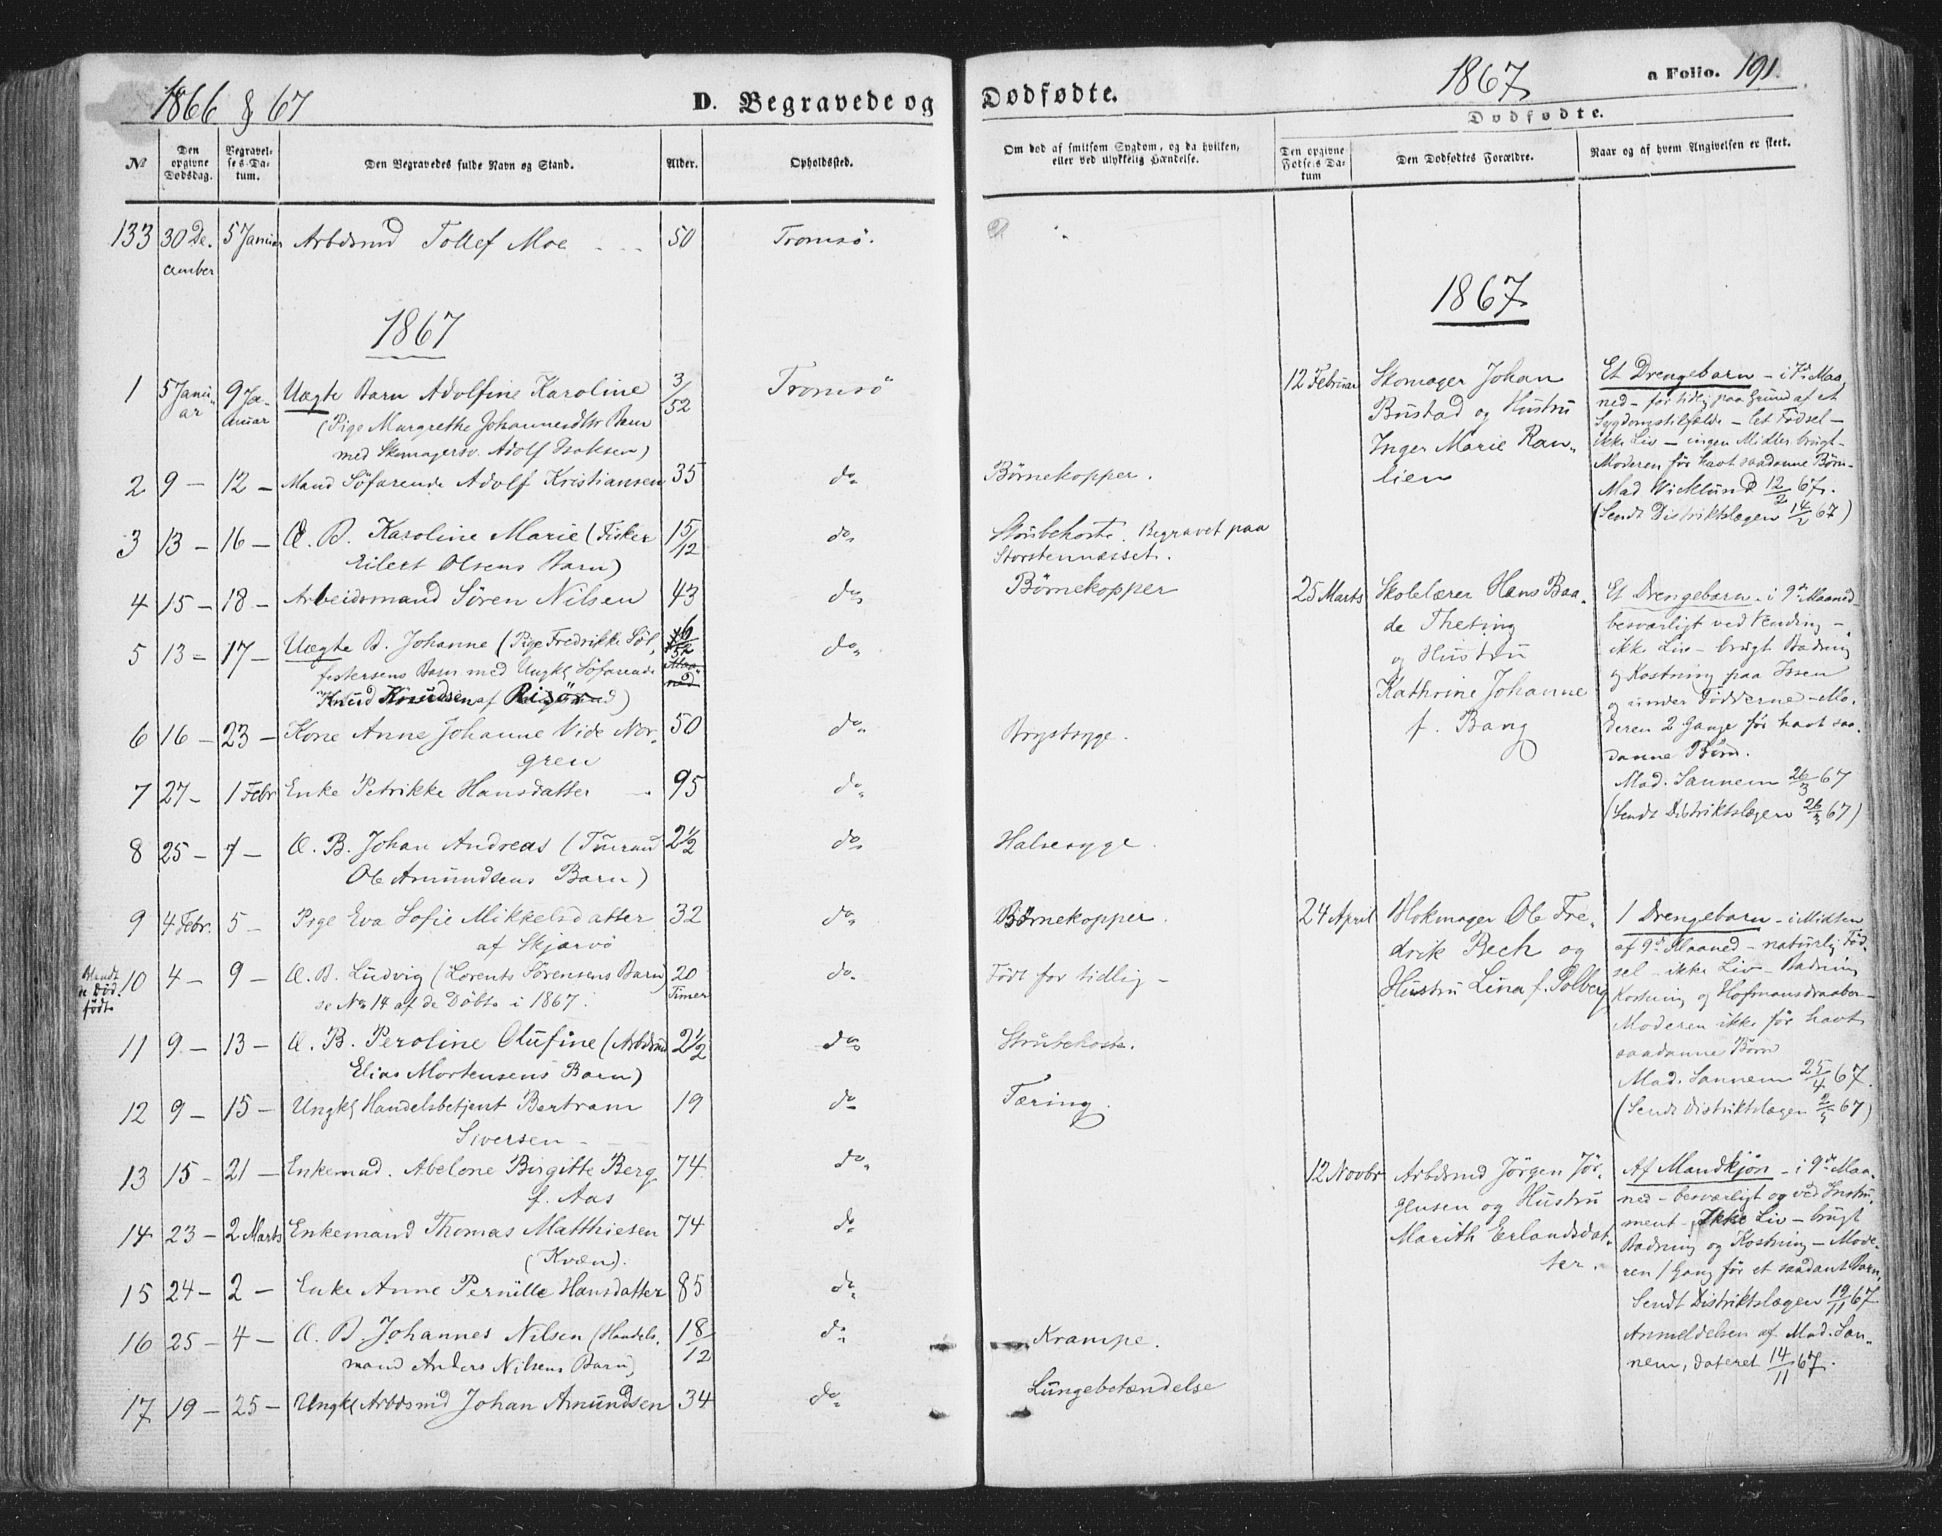 1866 & 67
D. Begravede og Dødfødte.
1867
a Folio. 191.
Dødfødte.
No
Den opgivne Dødsdag.
Begravelses Datum.
Den Begravedes fulde Navn og Stand.
Alder.
Opholdssted.
Om død af smitsom Sygdom, og da hvilken, eller ved ulykkelig Hændelse.
Den opgivne Fødsels Datum
Den Dødfødtes Forældre.
Naar og af hvem Angivelsen er skeet.
133 30 De- 5 Januar Arbdsmd Tollef Moe - - - 50 Tromsø.
cember
1867
1 5 Janu- 9 Ja- Uægte Barn Adolfine Karoline 3/52 Tromsø
ar nuar (Pige Margrethe Johannesdtr Barn
med Skomagersv. Adolf Isaksen)
2 9 - 12 - Mand Söfarende Adolf Kristiansen 35 do Børnekopper.
3 13 - 16 - Æ. B. Karoline Marie (Fisker 15/12 do Strubehoste. Begravet paa
Eilert Olsens Barn) Storstennæsset.
4 15 - 18 - Arbeidsmand Sören Nilsen 43 do Börnekopper
5 13 - 17 - Uægte B. Johanne (Pige Fredrikke Söl- 6/52 do
festersens Barn med Ungkl Söfarende
Knud Knudsen af Risör)
6 16 - 23 - Kone Anne Johanne Vide Nor- 50 do Brystsyge.
gren
7 27 - 1 Febr Enke Petrikke Hansdatter - 95 do
8 25 - 7 - Æ. B. Johan Andreas (Tømmd 2½ do Halssyge.
Ole Amundsens Barn)
9 4 Febr. 5 - Pige Eva Sofie Mikkelsdatter 32 do Børnekopper.
af Skjærvö
Blandt de Død- födte
10 4 - 9 - Æ. B. Ludvig (Lorents Sörensens Barn) 20 Timer do Födt for tidlig -
se No 14 af de Döbte i 1867.
11 9 - 13 - Æ. B. Peroline Olufine (Arbdsmd 2½ do Strubehoste.
Elias Mortensens Barn)
12 9 - 15 - Ungkl Handelsbetjent Bertram 19 do Tæring.
Siversen - - -
13 15 - 21 - Enkemad. Abelone Birgitte Berg 74 do
f. Aas
14 23 - 2 Marts Enkemand Thomas Matthiesen 74 do
(Kvæn).
15 24 - 2 - Enke Anne Pernille Hansdatter 85 do
16 25 - 4 - Æ. B. Johannes Nilsen (Handels- 18/12 do Krampe.
mand Anders Nilsens Barn)
17 19 - 25 - Ungkl Arbdsmd Johan Amundsen 34 do Lungebetændelse
1867
12 Februar
Skomager Johan
Bustad og Hustru
Inger Marie Ran-
lien
Et Drengebarn - i 7de Maa-
ned - for tidlig paa Grund af et
Sygdomstilfælde - let Födsel -
ikke Liv - ingen Midler brugt -
Moderen för havt saadanne Börn -
Mad Wicklund 12/2 67.
(Sendt Distriktslægen 14/2 67)
25 Marts
Skolelærer Hans Baa-
de Theting
og Hustru
Kathrine Johanne
f. Bang
Et Drengebarn - i 9de Maaned -
besværligt ved Vending -
ikke Liv - brugt Badning
og Kostning paa Issen
og under Födderne - Mo-
deren 2 Gange för havt saa-
danne Börn.
Mad. Sannem 26/3 67
(Sendt Distriktslægen 26/3 67)
24 April
Blokmager Ole Fre-
drik Bech og
Hustru Lina f. Solberg
1 Drengebarn - i Midten
af 9de Maaned - naturlig Föd-
sel - ikke Liv - Badning
Kostning og Hofmansdraaber -
Moderen ikke för havt
saadanne Börn
Mad. Sannem 25/4 67.
(Sendt Distriktslægen 2/5 67)
12 Novbr
Arbdsmd Jörgen Jör-
gensen og Hustru
Marith Erlandsdat-
ter.
Af Mandkjön - i 9de Maa-
ned - besværligt og ved Instru-
ment - Ikke Liv - brugt
Badning og Kostning - Mode-
ren 1 Gang för et saadant Barn,
Sendt Distriktslægen 19/11 67
Anmeldelsen af Mad. San-
nem, dateret 14/11 67.